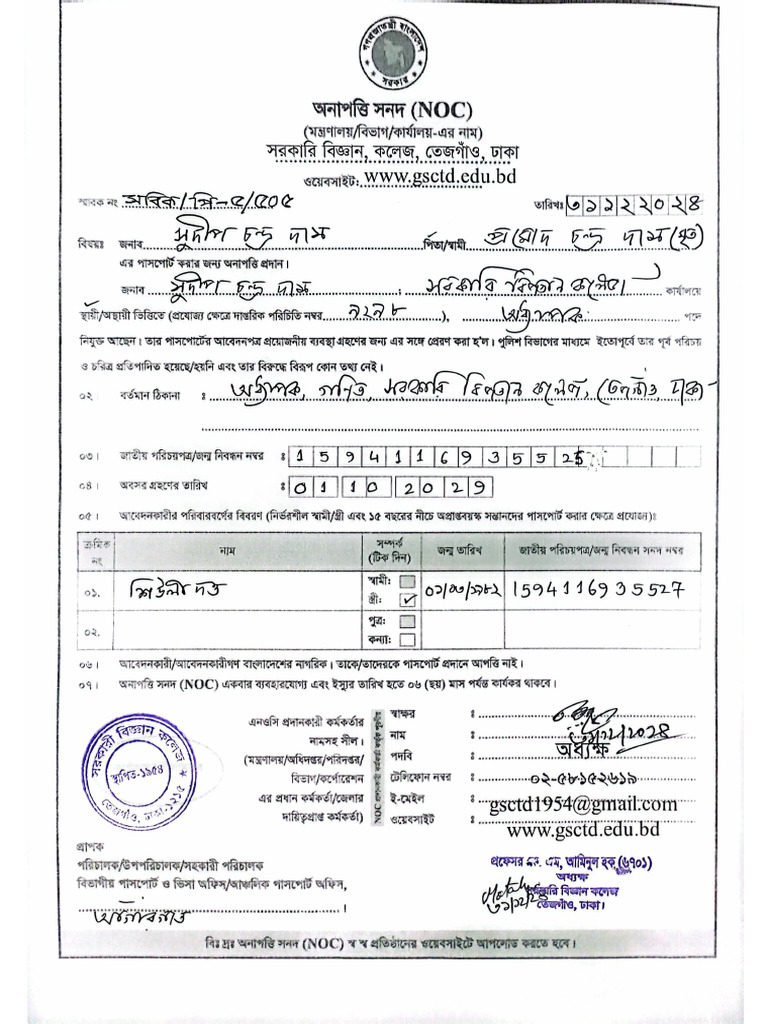 গণপ্রজাতন্ত্রী বাংলাদেশ
সরকার
অনাপত্তি সনদ (NOC)
(মন্ত্রণালয়/বিভাগ/কার্যালয়-এর নাম)
সরকারি বিজ্ঞান, কলেজ, তেজগাঁও, ঢাকা
ওয়েবসাইট: www.gsctd.edu.bd
স্মারক নং সবিক/পি-৫/৫০৫ তারিখঃ ৩১১২২০২৪
বিষয়ঃ জনাব সুদীপ চন্দ্র দাস পিতা/স্বামী প্রমোদ চন্দ্র দাস (মৃত)
এর পাসপোর্ট করার জন্য অনাপত্তি প্রদান।
জনাব সুদীপ চন্দ্র দাস, সরকারি বিজ্ঞান কলেজ কার্যালয়ে
স্থায়ী/অস্থায়ী ভিত্তিতে (প্রযোজ্য ক্ষেত্রে দাপ্তরিক পরিচিতি নম্বর ৯২৯৮), অধ্যাপক পদে
নিযুক্ত আছেন। তার পাসপোর্টের আবেদনপত্র প্রয়োজনীয় ব্যবস্থা গ্রহণের জন্য এর সঙ্গে প্রেরণ করা হ'ল। পুলিশ বিভাগের মাধ্যমে ইতোপূর্বে তার পূর্ব পরিচয়
ও চরিত্র প্রতিপাদিত হয়েছে/হয়নি এবং তার বিরুদ্ধে বিরূপ কোন তথ্য নেই।
০২। বর্তমান ঠিকানা ঃ অধ্যাপক, গণিত, সরকারি বিজ্ঞান কলেজ, তেজগাঁও, ঢাকা-
০৩। জাতীয় পরিচয়পত্র/জন্ম নিবন্ধন নম্বর ঃ 159411693552
০৪। অবসর গ্রহণের তারিখ ঃ 01102029
০৫। আবেদনকারীর পরিবারবর্গের বিবরণ (নির্ভরশীল স্বামী/স্ত্রী এবং ১৫ বছরের নীচে অপ্রাপ্তবয়স্ক সন্তানদের পাসপোর্ট করার ক্ষেত্রে প্রযোজ্য)ঃ
ক্রমিক নং নাম সম্পর্ক (টিক দিন) জন্ম তারিখ জাতীয় পরিচয়পত্র/জন্ম নিবন্ধন সনদ নম্বর
০১. শিউলী দত্ত স্বামী: স্ত্রী: ✓ ০১/০৩/১৯৮২ 1594116935527
০২. পুত্র: কন্যা:
০৬। আবেদনকারী/আবেদনকারীগণ বাংলাদেশের নাগরিক। তাকে/তাদেরকে পাসপোর্ট প্রদানে আপত্তি নাই।
০৭। অনাপত্তি সনদ (NOC) একবার ব্যবহারযোগ্য এবং ইস্যুর তারিখ হতে ০৬ (ছয়) মাস পর্যন্ত কার্যকর থাকবে।
সরকারী বিজ্ঞান কলেজ
স্থাপিত-১৯৫৪
তেজগাঁও, ঢাকা-১২১৫
এনওসি প্রদানকারী কর্মকর্তার
নামসহ সীল।
(মন্ত্রণালয়/অধিদপ্তর/পরিদপ্তর/
বিভাগ/কর্পোরেশন
এর প্রধান কর্মকর্তা/জেলার
দায়িত্বপ্রাপ্ত কর্মকর্তা)
স্বাক্ষর ঃ
নাম ঃ ৩১/১২/২০২৪
পদবি ঃ অধ্যক্ষ
টেলিফোন নম্বর ঃ ০২-৫৮১৫২৬১৯
ই-মেইল ঃ gsctd1954@gmail.com
ওয়েবসাইট ঃ www.gsctd.edu.bd
প্রাপক
পরিচালক/উপপরিচালক/সহকারী পরিচালক
বিভাগীয় পাসপোর্ট ও ভিসা অফিস/আঞ্চলিক পাসপোর্ট অফিস,
আগারগাঁও।
প্রফেসর এ.কে. এম, আমিনুল হক (৬৭০১)
অধ্যক্ষ
সরকারি বিজ্ঞান কলেজ
তেজগাঁও, ঢাকা।
৩১/১২/২৪
বিঃ দ্রঃ অনাপত্তি সনদ (NOC) স্ব স্ব প্রতিষ্ঠানের ওয়েবসাইটে আপলোড করতে হবে।